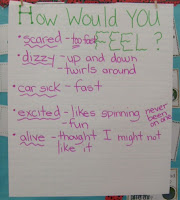 How Would You
FEEL ?
• scared - too fast
• dizzy - up and down
- twirls around
• car sick - fast
• excited - likes spinning
- fun
never
been
on one
• alive - thought I might not
like it